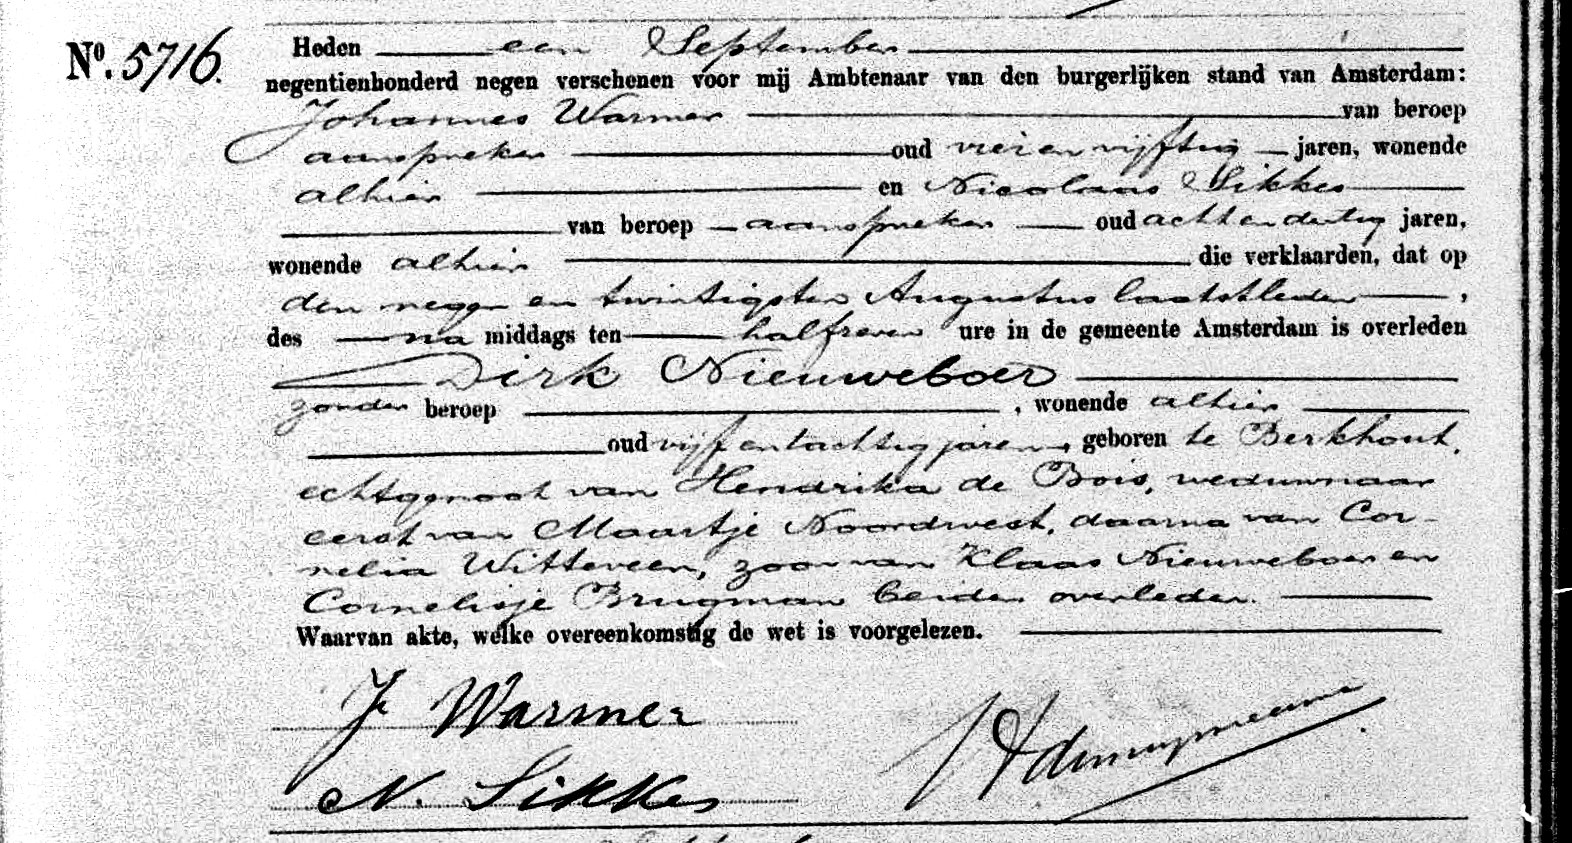 No. 5716. Heden een September
negentienhonderd negen verschenen voor mij Ambtenaar van den burgerlijken stand van Amsterdam:
Johannes Warmer van beroep
aanspreker oud vier en vijftig jaren, wonende
alhier en Nicolaas Sikkes
van beroep aanspreker oud acht en dertig jaren,
wonende alhier die verklaarden, dat op
den negen en twintigsten Augustus laatstleden,
des na middags ten half zeven ure in de gemeente Amsterdam is overleden
Dirk Nieuweboer
zonder beroep, wonende alhier
oud vijf en tachtig jaren, geboren te Berkhout,
echtgenoot van Hendrika de Bois, weduwnaar
eerst van Maartje Noordwest, daarna van Cor-
nelia Witteveen, zoon van Klaas Nieuweboer en
Cornelisje Brugman beiden overleden.
Waarvan akte, welke overeenkomstig de wet is voorgelezen.
J Warmer
N. Sikkes